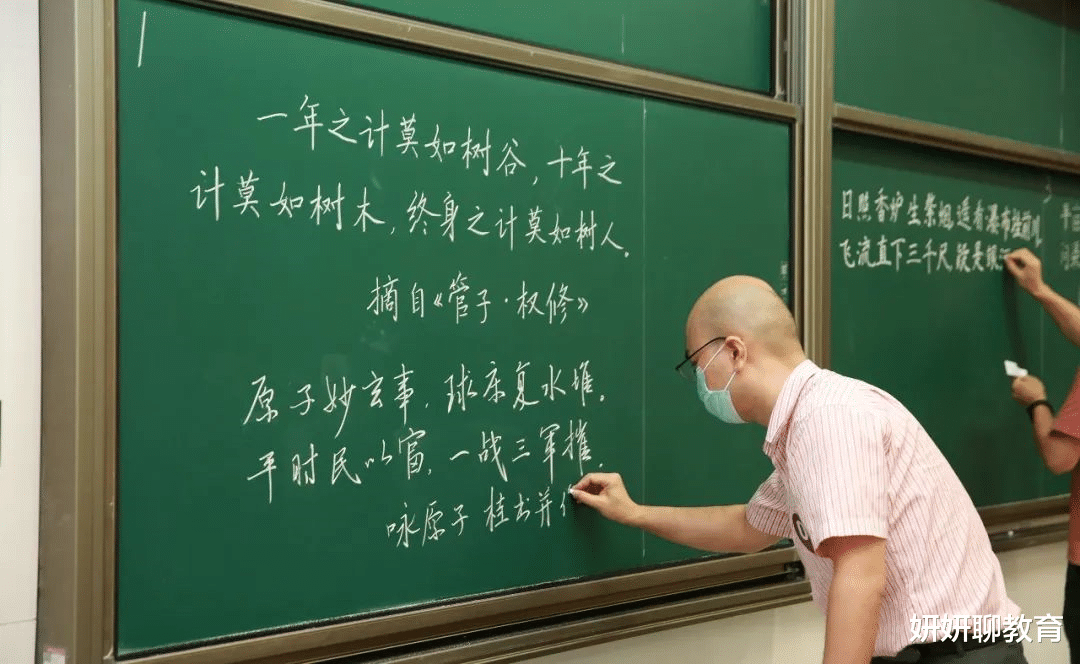 一年之计莫如树谷,十年之
计莫如树木,终身之计莫如树人。
摘自《管子·权修》
原子妙玄事,球床复水堆。
平时民以富,一战三军摧.
咏原子 桂书并
日照香炉生紫烟遥看瀑布挂前川
飞流直下三千尺疑是银河
妍妍聊教育